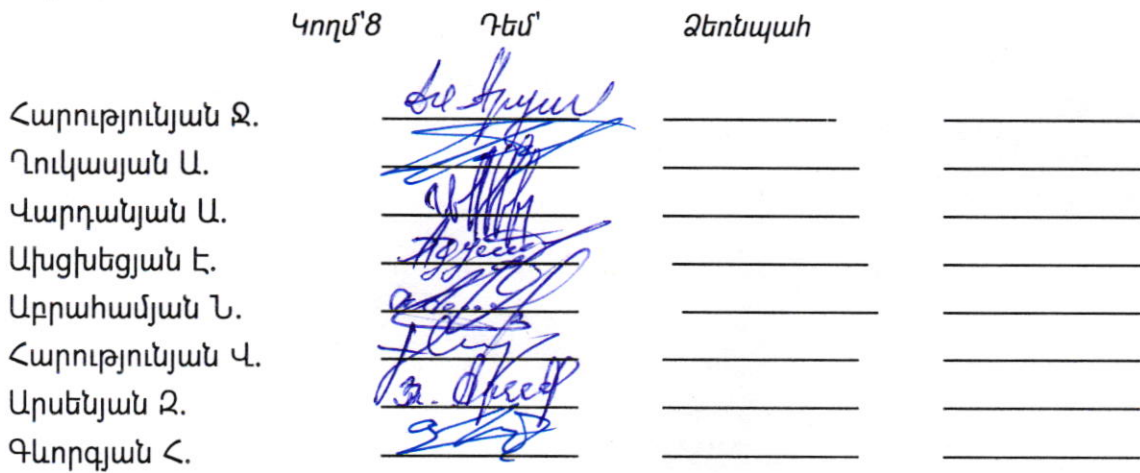 Կողմ՝8 Դեմ՝ Ձեռնպահ
Հարությունյան Ջ.
Ղուկասյան Ա.
Վարդանյան Ա.
Ախցխեցյան Է.
Աբրահամյան Ն.
Հարությունյան Վ.
Արսենյան Զ.
Գևորգյան Հ.